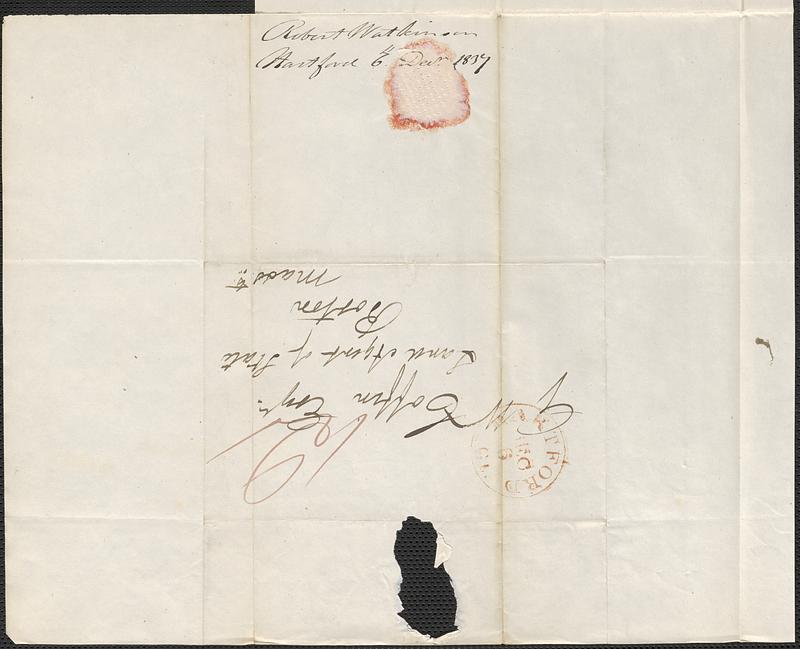 Robert Watkinson
Hartford 6th Decr 1837
G W Coffin Esqr
Land Agent of State
Boston
Massts
HARTFORD
DEC
6
CT